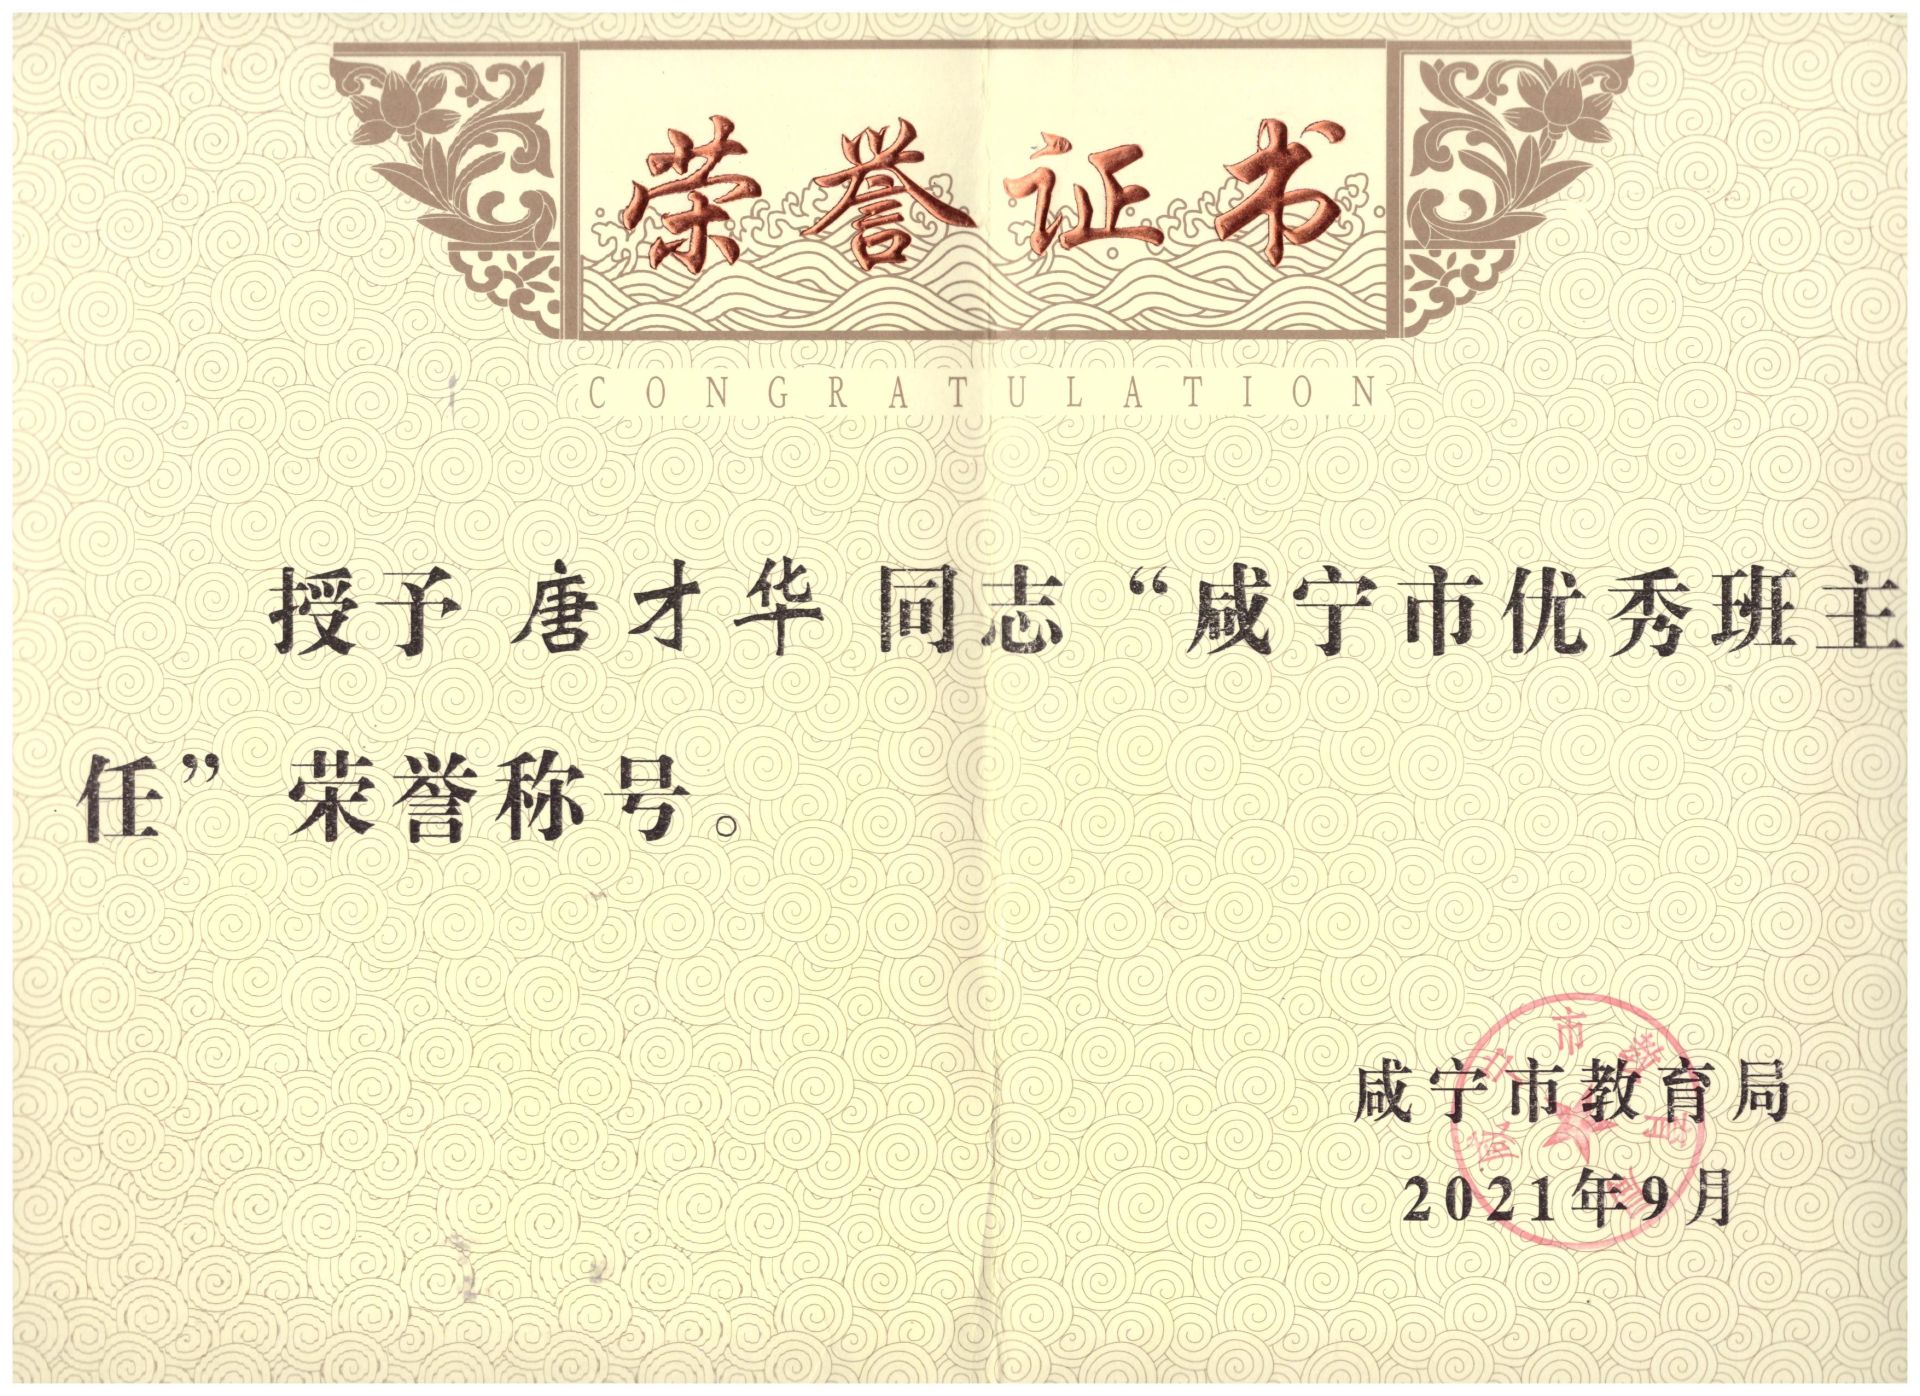 荣誉证书
CONGRATULATION
授予 唐才华 同志“咸宁市优秀班主
任”荣誉称号。
咸宁市教育局
2021年9月
咸宁市教育局